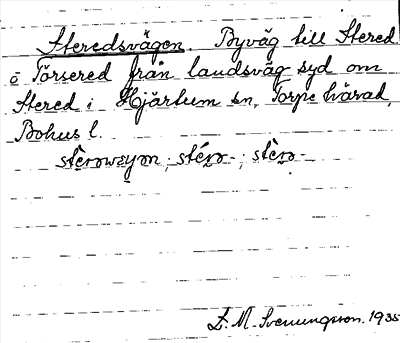 Steredsvägen. Byväg till Stered
o Törsered från landsväg syd om
Stered i Hjärtum sn, Torpe härad,
Bohus l.
L. M. Svenungsson. 1935